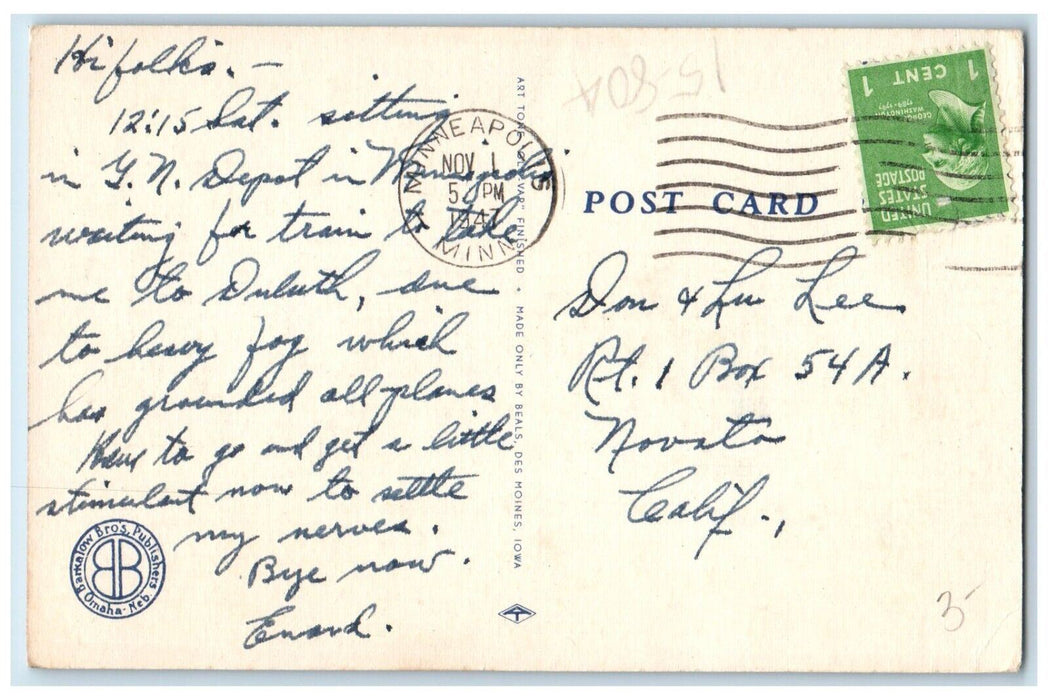 Hi folks. —
12:15 Sat. sitting
in G.N. Depot in Minneapolis
waiting for train to take
me to Duluth, due
to heavy fog which
has grounded all planes
Have to go and get a little
stimulant now to settle
my nerves.
Bye now.
Barkalow Bros. Publishers
Omaha - Neb.
ART TONE FINISHED • MADE ONLY BY BEALS, DES MOINES, IOWA
MINNEAPOLIS
NOV 1
5 PM
1947
MINN
15-80A
1 CENT 1
GEORGE WASHINGTON
1789-1797
UNITED
STATES
POSTAGE
POST CARD
Don & Lu Lee
Rt. 1 Box 54A.
Novato
Calif.,
3-